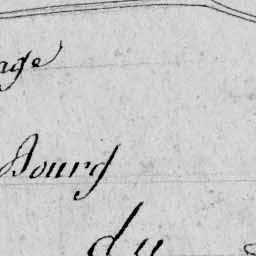 age
Bourg
du